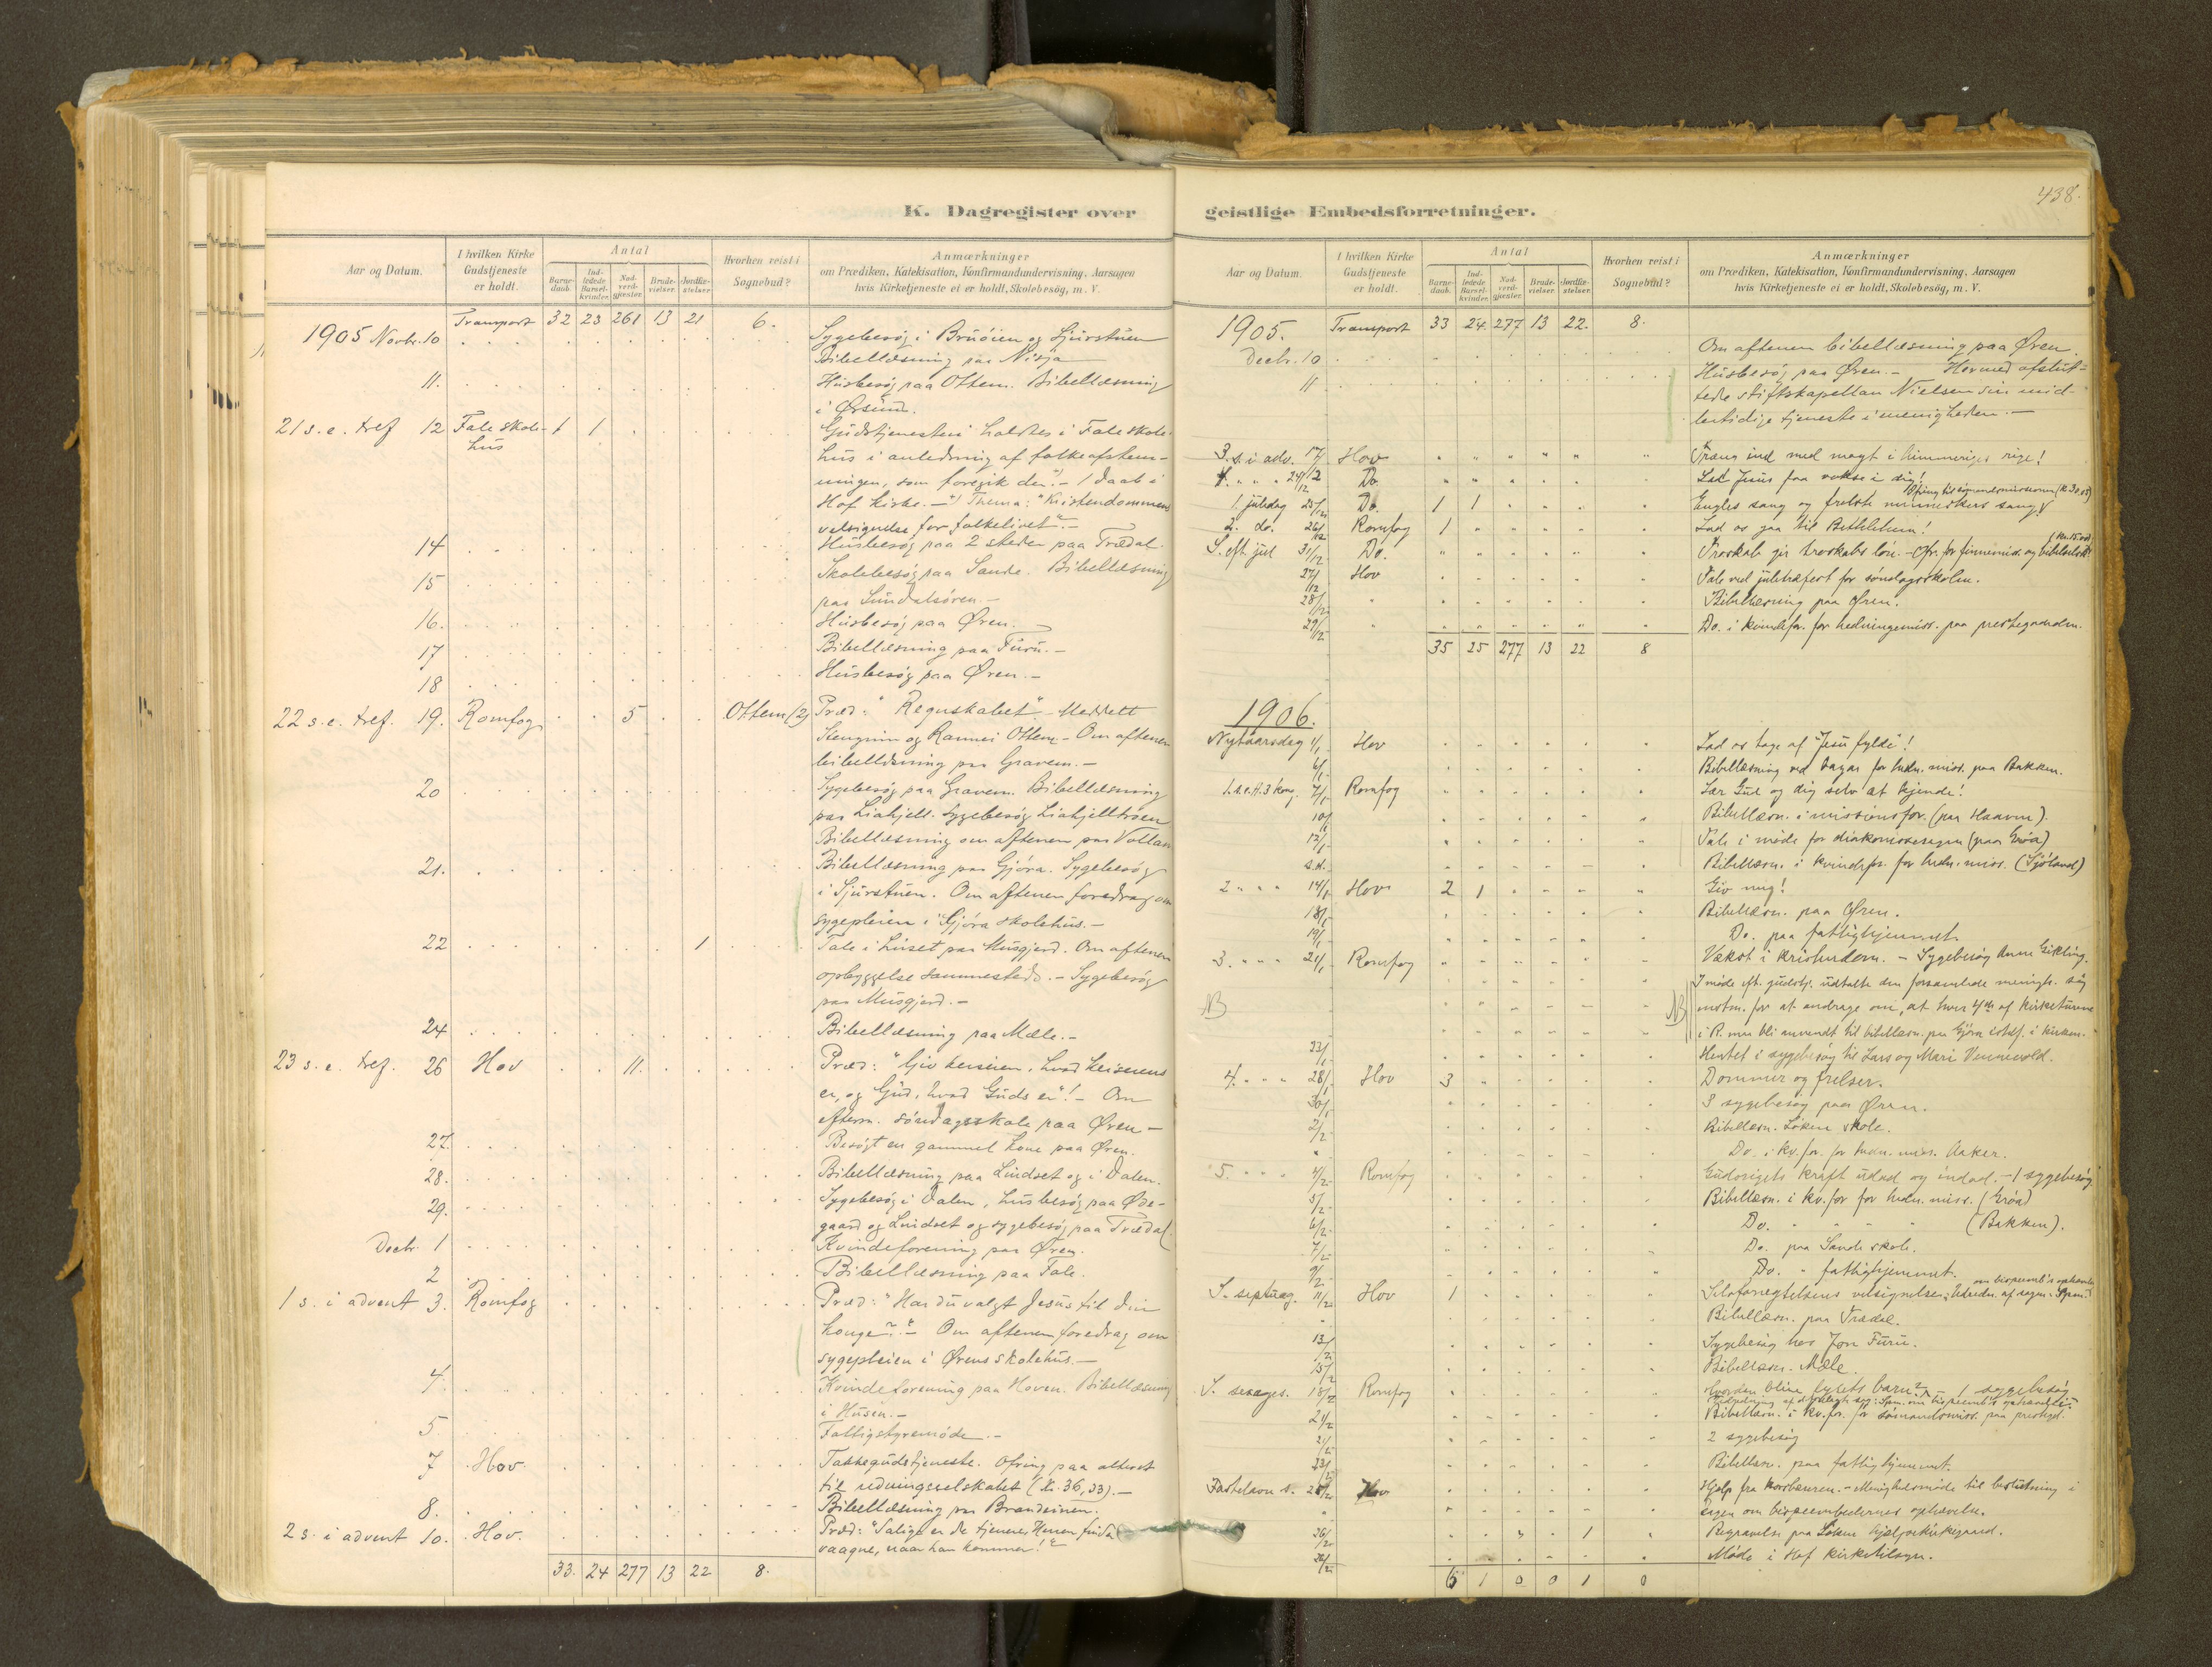 K. Dagregister over
Aar og Datum.
I hvilken Kirke Gudstjeneste er holdt.
Antal
Barnedaab.
Indledede Barselkvinder.
Nadverdgjæster.
Brudevielser.
Jordfæstelser.
Hvorhen reist i Sognebud?
Anmærkninger
om Prædiken, Katekisation, Konfirmandundervisning, Aarsagen
hvis Kirketjeneste ei er holdt, Skolebesög, m. V.
Transport 32 23 261 13 21 6.
1905 Novbr. 10 Sygebesøg i Brúøien og Sjúrstúen
Bibellæsning paa Nisja
11. Húsbesøg paa Ottem. Bibellæsning
i Ørsúnd.
21 s. e. tref 12 Fale skole- 1 1 Gúdstjenesten holdtes i Fale skole-
hús
hús i anledning af folkeafstem-
ningen, som foregik der. - 1 daab i
Hof kirke. - Thema: "Kristendommens
velsignelse for folkelivet". -
14 Húsbesøg paa 2 steder paa Trædal.
15 Skolebesøg paa Sande. Bibellæsning
paa Súndalsøren. -
16. Húsbesøg paa Øren. -
17 Bibellæsning paa Fúrú. -
18 Húsbesøg paa Øren. -
22 s. e. tref. 19. Romfog 5 Ottem (2) Præd: "Regnskabet". Meddelt
Stengrim og Rannei Ottem. - Om aftenen
bibellæsning paa Gravem. -
20 Sygebesøg paa Gravem. Bibellæsning
paa Liahjell. Sygebesøg Liahjelltrøen
Bibellæsning om aftenen paa Vollan
21. Bibellæsning paa Gjøra. Sygebesøg
i Sjúrstúen. Om aftenen foredrag om
sygepleien i Gjøra skolehús. -
22 1 Tale i húset paa Músgjerd. Om aftenen
opbyggelse sammesteds. - Sygebesøg
paa Músgjerd. -
24 Bibellæsning paa Mæle. -
23 s. e. tref. 26 Hov 11. Præd: "Giv keiseren, hvad keiserens
er, og Gúd, hvad Gúds er"! - Om
efterm. søndagsskole paa Øren -
27. Besøgt en gammel kone paa Øren.
28. Bibellæsning paa Lindset og i Dalen.
29. Sygebesøg i Dalen, húsbesøg paa Øde-
gaard og Lindset og sygebesøg paa Trædal.
Decbr. 1 Kvindeforening paa Øren.
2 Bibellæsning paa Fale.
1 s. i advent 3. Romfog Præd: "Har dú valgt Jesús til din
konge?" - Om aftenen foredrag om
sygepleien i Ørens skolehús. -
4. Kvindeforening paa Hoven. Bibellæsning
i Húsen. -
5 Fattigstyremøde. -
7 Hov. Takkegúdstjeneste. Ofring paa alteret
til redningsselskabet (kr. 36,33). -
8. Bibellæsning paa Brandsnúen.
2 s. i advent 10. Hov. Præd: "Salige er de tjenere, Herren finder
vaagne, naar han kommer!"
33. 24 277 13 22 8.
438.
geistlige Embedsforretninger.
Aar og Datum.
I hvilken Kirke Gudstjeneste er holdt.
Antal
Barnedaab.
Indledede Barselkvinder.
Nadverdgjæster.
Brudevielser.
Jordfæstelser.
Hvorhen reist i Sognebud?
Anmærkninger
om Prædiken, Katekisation, Konfirmandundervisning, Aarsagen
hvis Kirketjeneste ei er holdt, Skolebesög, m. V.
1905. Transport 33 24. 277 13 22. 8.
Decbr. 10 Om aftenen bibellæsning paa Øren.
11 Húsbesøg paa Øren. - Hermed afslút-
tede stiftskapellan Nielsen sin mid-
lertidige tjeneste i menigheden. -
3. s. i adv. 17/ Hov Træng ind med magt i himmeriges rige!
4. " " " 24/12 Do Lad Jesus faa vokse i dig!
Ofring til sjømandsmissionen
1. juledag 25/12 Do. 1 1 Engles sang og frelste menneskers sang!
2. do. 26/12 Romfog 1 Lad os gaa til Bethlehem!
S. eft. jul 31/12 Do. Troskab gir troskabs løn. - Ofr. for finnemis. og bibelselsk.
27/12 Hov Tale ved juletræfest for søndagsskolen.
28/12 " Bibellæsning paa Øren.
29/12 " Do. i kvindefor. for hedningemiss. paa prestegaarden.
35 25 277 13 22 8
1906.
Nytaarsdag 1/1 Hov Lad os tage af "Jesu fylde"!
6/1 Bibellæsning ved Aagar for hedn. miss. paa Bakken.
1. s. e. H. 3 kong. 7/1 Romfog Lær Gud og dig selv at kjende!
10/1 Bibellæsn. i missionsfor. (paa Haaven).
12/1 Tale i møde for diakonissesagen (paa Grøa)
s. d. Bibellæsn. i kvindefor. for hedn. miss. (Sjøland)
2 " " " 14/1 Hov 2 1 Giv mig!
18/1 Bibellæsn. paa Øren.
19/1 Do. paa fattighjemmet
3. " " " 21/1 Romfog Vækst i kristendom. - Sygebesøg Anne Gikling.
I møde eft. gudstj. udtalte den forsamlede menigh. sig
NB NB enstm. for at andrage om, at hver 4de af kirketurene
i R. maa bli anvendt til bibellæsn. paa Gjøra istdf. i kirken.
23/1 Hentet i sygebesøg til Lars og Mari Vennevold.
4. " " " 28/1 Hov 3 Dommer og frelser.
30/1 3 sygebesøg paa Øren.
2/2 Bibellæsn. Løken skole.
" Do. i kv. for. for hedn. miss. Aaker.
5. " " " 4/2 Romfog Gudsrigets kraft udad og indad. - 1 sygebesøg
5/2 Bibellæsn. i kv. for for hedn. miss. (Grøa)
6/2 Do. " " " " (Bakken).
7/2 Do. paa Sande skole.
9/2 Do. " fattighjemmet.
S. septuag. 11/2 Hov 1 Selvfornegtelsens velsignelse.
" Bibellæsn. paa Trædal.
13/2 Sygebesøg hos Jon Furu.
15/2 Bibellæsn. Mæle.
S. sexages. 18/2 Romfog Hvordan blive lysets barn? - 1 sygebesøg
Bibellæsn. i kv. for. for sømandsmiss. paa prestegd.
21/2 2 sygebesøg
23/2 Bibellæsn. paa fattighjemmet.
Fastelavn s. 25/2 Hov Hjelp fra korsbæreren. - Menighedsmøde til beslutning i
" sagen om bispeembedernes ophævelse.
26/2 1 Begravelse paa Løken hjelpekirkegaard.
Møde i Hof kirketilsyn.
6 1 0 0 1 0